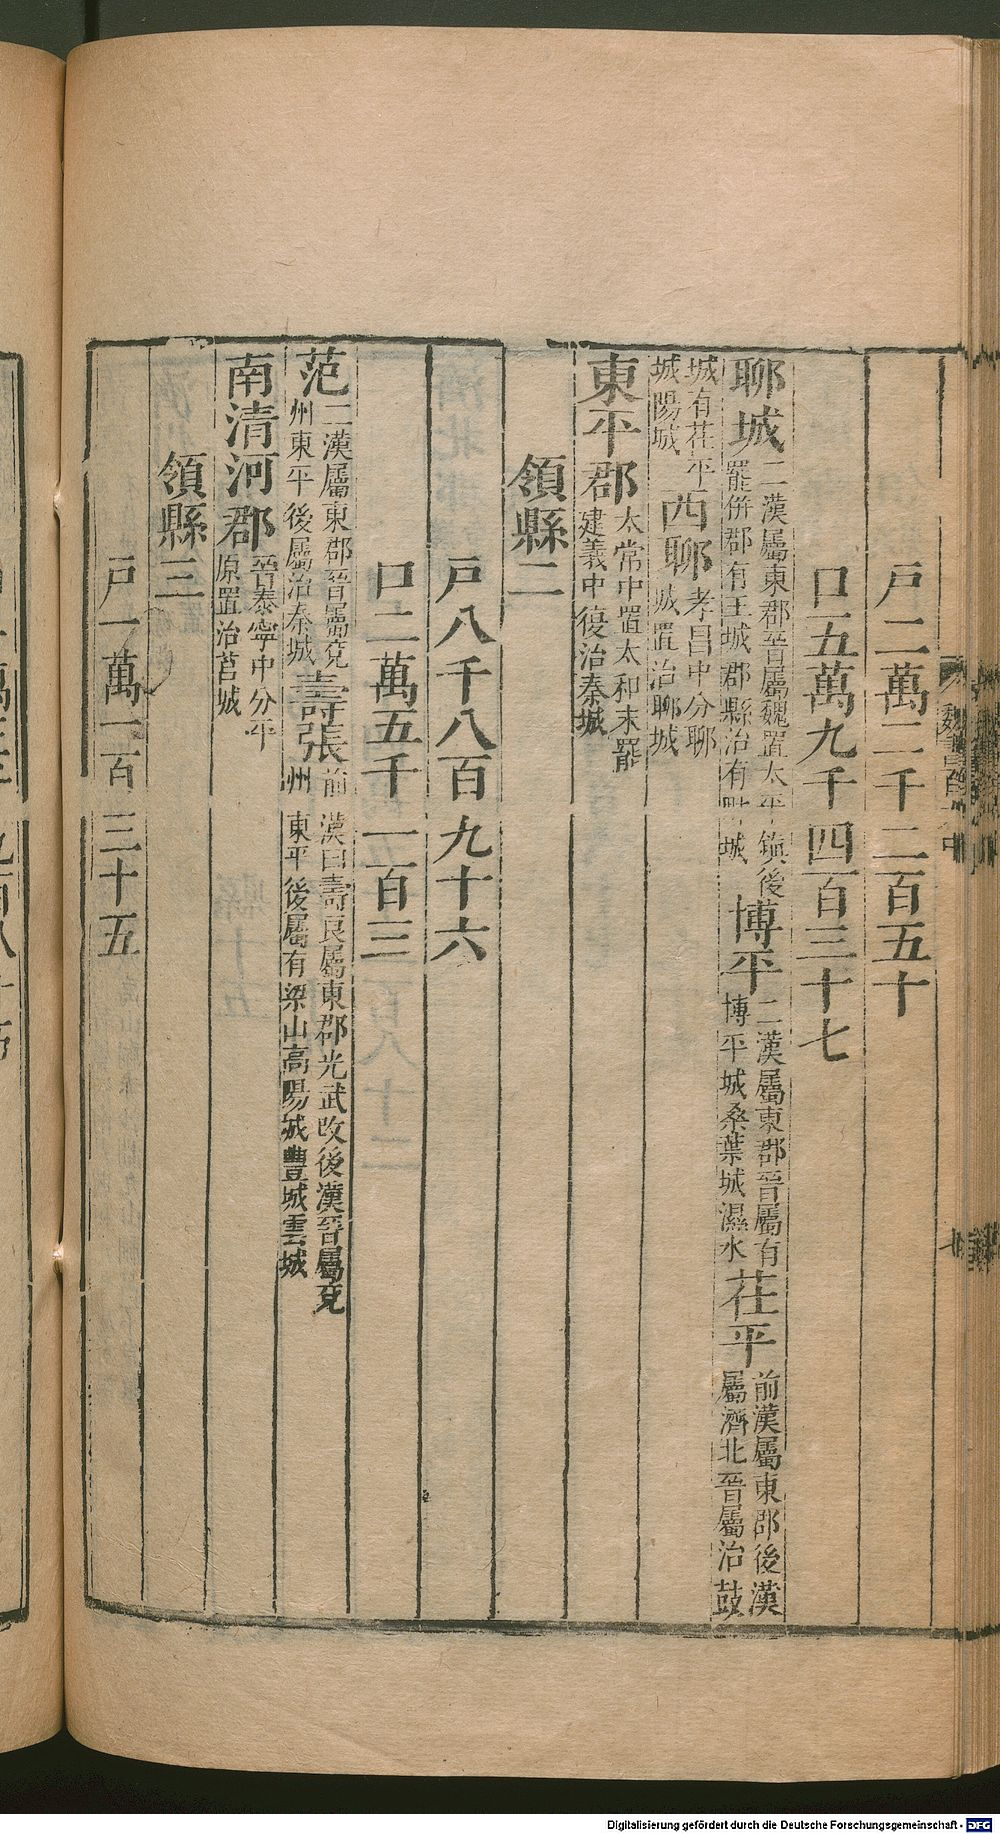 戸二萬二千二百五十
口五萬九千四百三十七
聊城二漢屬東郡晉屬魏置太平鎮後罷併郡有王城郡縣治有城博平二漢屬東郡晉屬有博平城桑葉城濕水茌平前漢屬東郡後漢屬濟北晉屬治鼓
城有茌平城陽城西聊孝昌中分聊城置治聊城
東平郡太常中置太和末罷建義中復治秦城
領縣二
戸八千八百九十六
口二萬五千一百三
范二漢屬東郡晉屬兗州東平後屬治秦城壽張前漢曰壽良屬東郡光武改後漢晉屬兗州東平後屬有梁山高陽城豐城雲城
南清河郡晉泰寧中分平原置治莒城
領縣三
戸一萬一百三十五
Digitalisierung gefördert durch die Deutsche Forschungsgemeinschaft - DFG